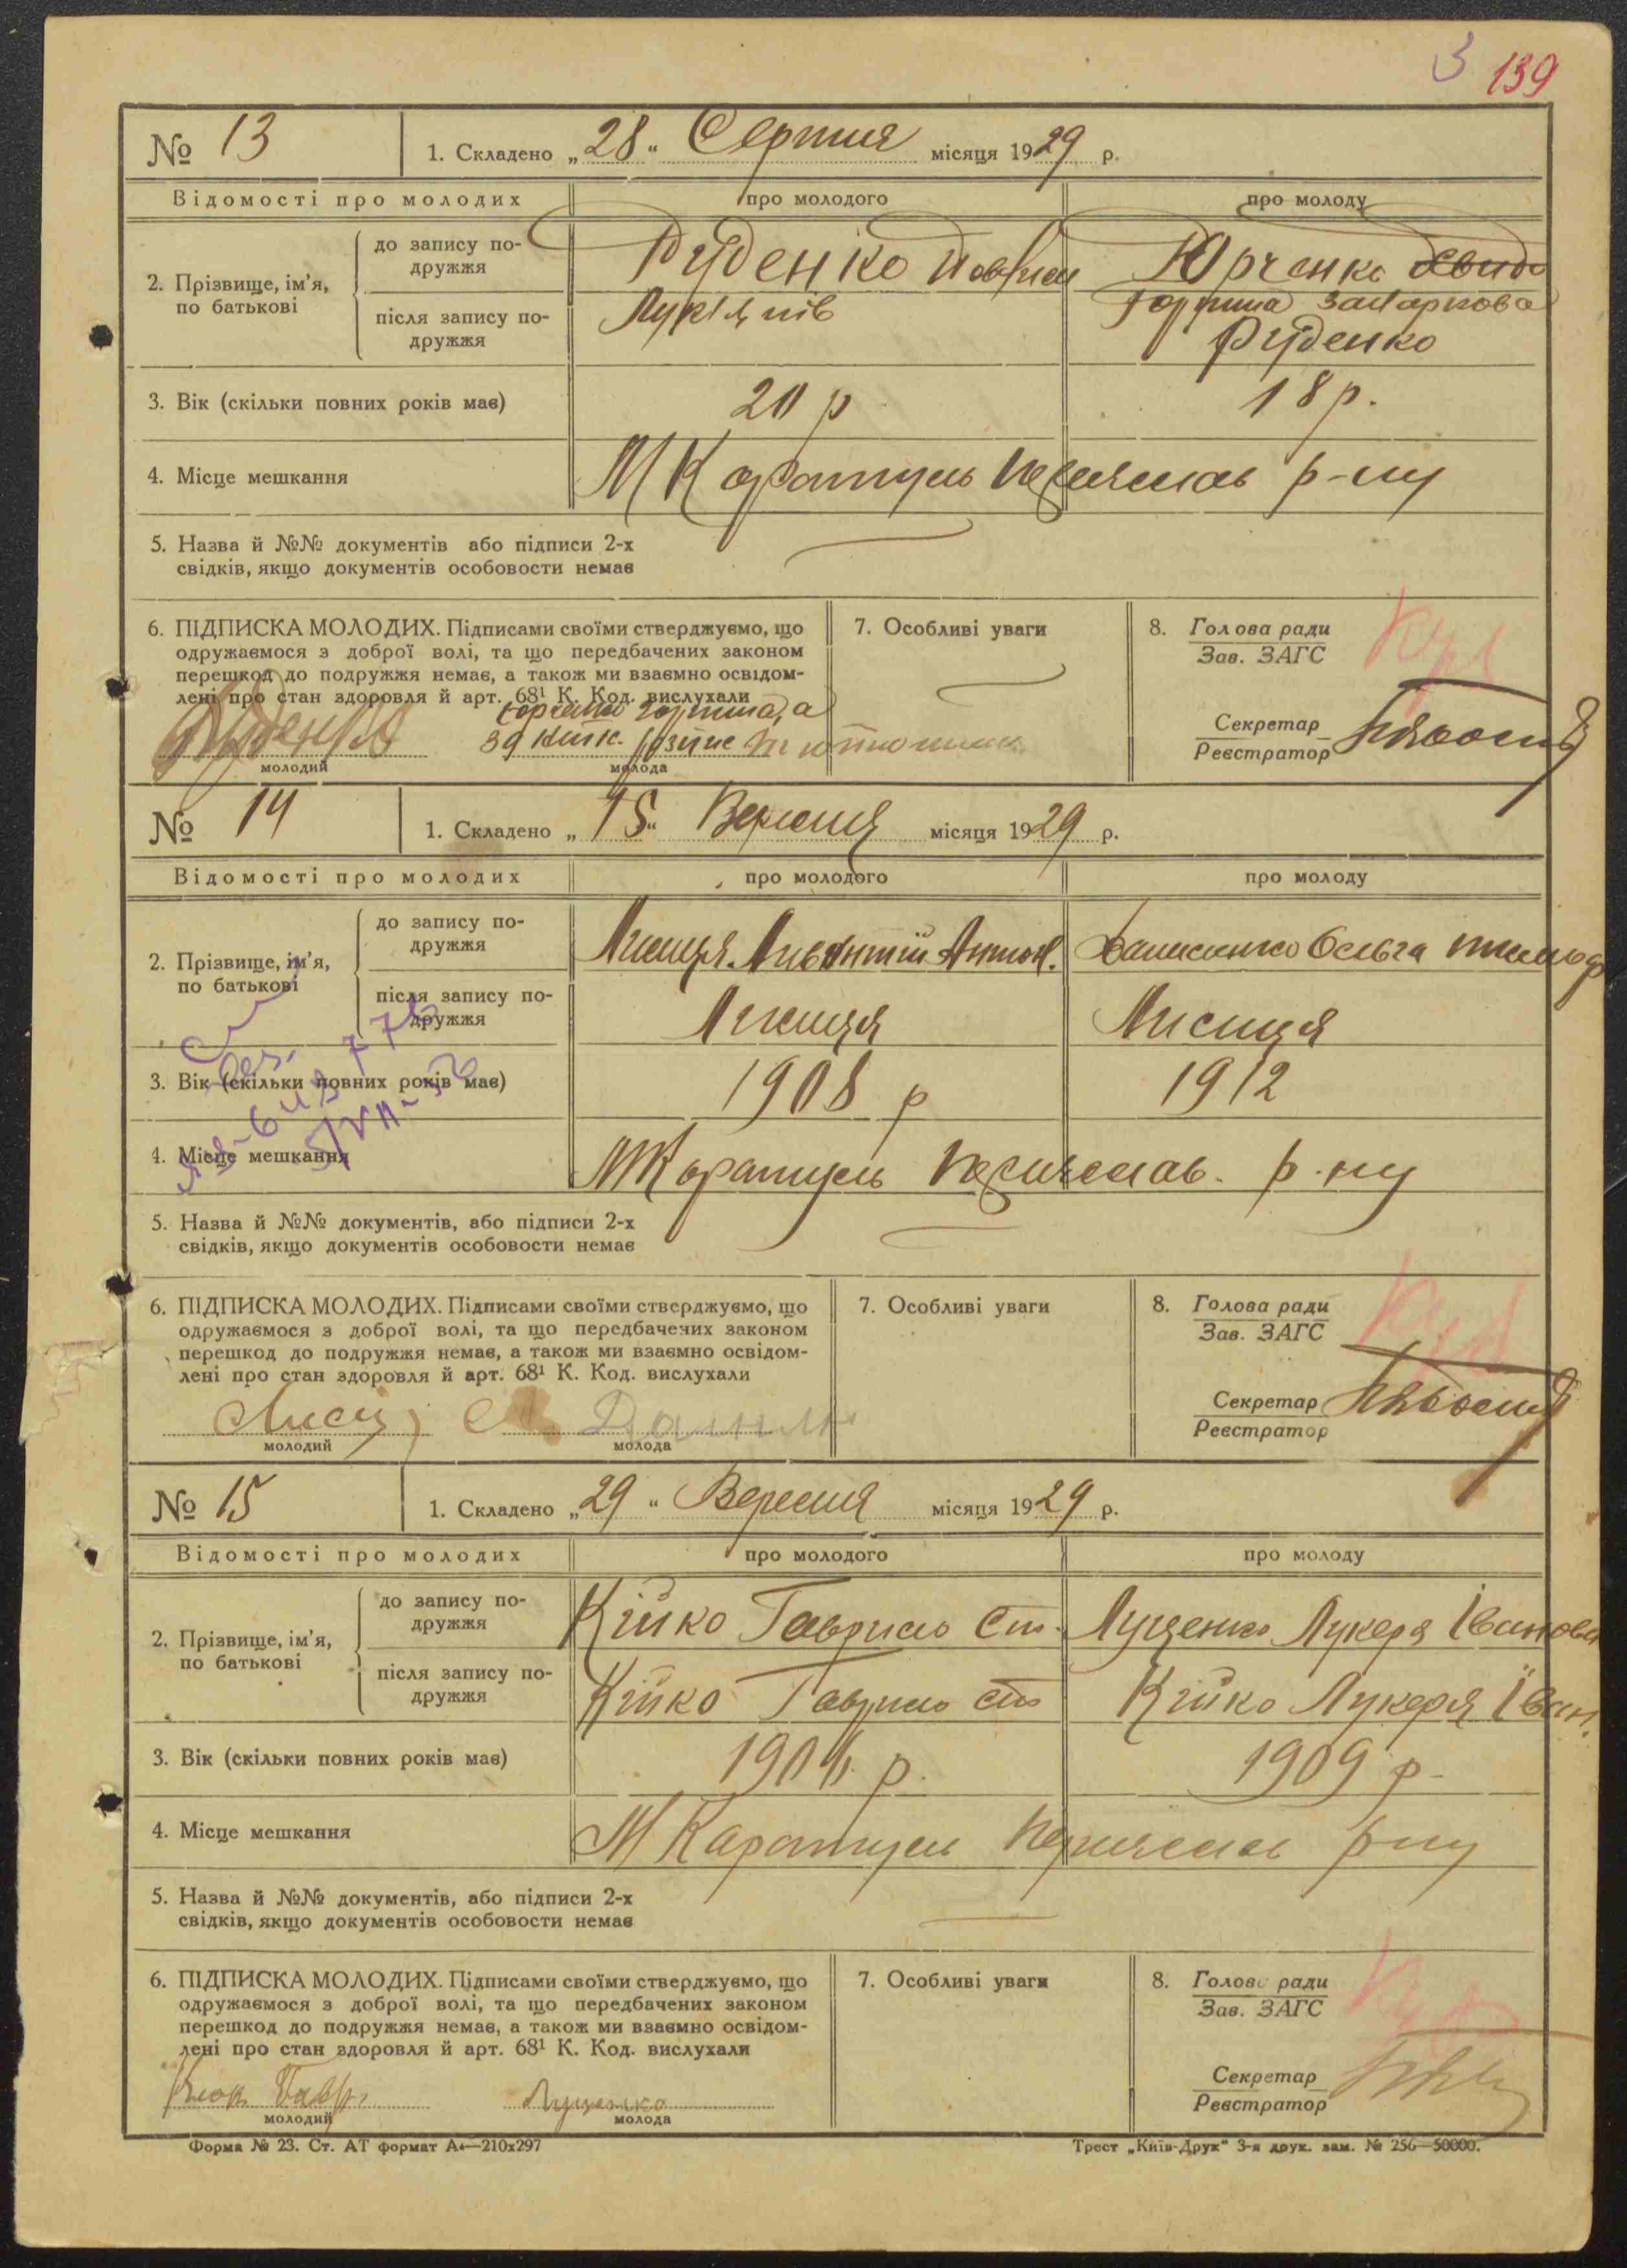 3 139
№ 13 1. Складено „28“ Серпня місяця 1929 р.
Відомості про молодих про молодого про молоду
2. Прізвище, ім'я, по батькові
до запису подружжя Руденко Юрченко
Горпина Захаркова
після запису подружжя Руденко
3. Вік (скільки повних років має) 20 р 18 р.
4. Місце мешкання М Каратуль Переяслав р-ну
5. Назва й №№ документів або підписи 2-х
свідків, якщо документів особовости немає
6. ПІДПИСКА МОЛОДИХ. Підписами своїми стверджуємо, що
одружаємося з доброї волі, та що передбачених законом
перешкод до подружжя немає, а також ми взаємно освідом-
лені про стан здоровля й арт. 68¹ К. Код. вислухали
Руденко Юрченко Горпина, а
молодий молода
7. Особливі уваги
8. Голова ради
Зав. ЗАГС
Секретар
Реєстратор
№ 14 1. Складено „15“ Вересня місяця 1929 р.
Відомості про молодих про молодого про молоду
2. Прізвище, ім'я, по батькові
до запису подружжя Лисиця Антон. Ольга
після запису подружжя Лисиця Лисиця
3. Вік (скільки повних років має) 1908 р 1912
4. Місце мешкання М Каратуль Переяслав. р-ну
5. Назва й №№ документів, або підписи 2-х
свідків, якщо документів особовости немає
6. ПІДПИСКА МОЛОДИХ. Підписами своїми стверджуємо, що
одружаємося з доброї волі, та що передбачених законом
перешкод до подружжя немає, а також ми взаємно освідом-
лені про стан здоровля й арт. 68¹ К. Код. вислухали
молодий молода
7. Особливі уваги
8. Голова ради
Зав. ЗАГС
Секретар
Реєстратор
№ 15 1. Складено „29“ Вересня місяця 1929 р.
Відомості про молодих про молодого про молоду
2. Прізвище, ім'я, по батькові
до запису подружжя Кійко Гаврило Ст. Луценко Лукеря Іванова
після запису подружжя Кійко Гаврило Ст Кійко Лукеря Іван.
3. Вік (скільки повних років має) 1909 р.
4. Місце мешкання М Каратуль Переяслав р-ну
5. Назва й №№ документів, або підписи 2-х
свідків, якщо документів особовости немає
6. ПІДПИСКА МОЛОДИХ. Підписами своїми стверджуємо, що
одружаємося з доброї волі, та що передбачених законом
перешкод до подружжя немає, а також ми взаємно освідом-
лені про стан здоровля й арт. 68¹ К. Код. вислухали
Луценко
молодий молода
7. Особливі уваги
8. Голова ради
Зав. ЗАГС
Секретар
Реєстратор
Форма № 23. Ст. АТ формат А₄—210х297 Трест „Київ-Друк“ 3-я друк. зам. № 256—50000.